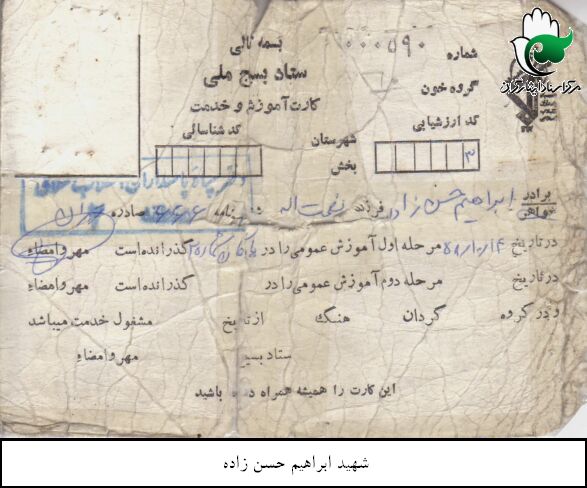 بسمه تعالی
ستاد بسیج ملی
کارت آموزش و خدمت
کد شناسائی
شماره ۰۰۰۰۵۹۰
گروه خون
کد ارزشیابی
شهرستان
بخش
۳
مرکز اسناد ایثارگران
دفتر سپاه پاسداران انقلاب اسلامی
برادر
خواهر
ابراهیم حسن زاده فرزند نعمت اله صادره
در تاریخ مرحله اول آموزش عمومی را در گذرانده است مهر و امضاء
در تاریخ مرحله دوم آموزش عمومی را در گذرانده است مهر و امضاء
و در گروه گردان هنگ از تاریخ مشغول خدمت میباشد
ستاد بسیج مهر و امضاء
این کارت را همیشه همراه داشته باشید
شهید ابراهیم حسن زاده